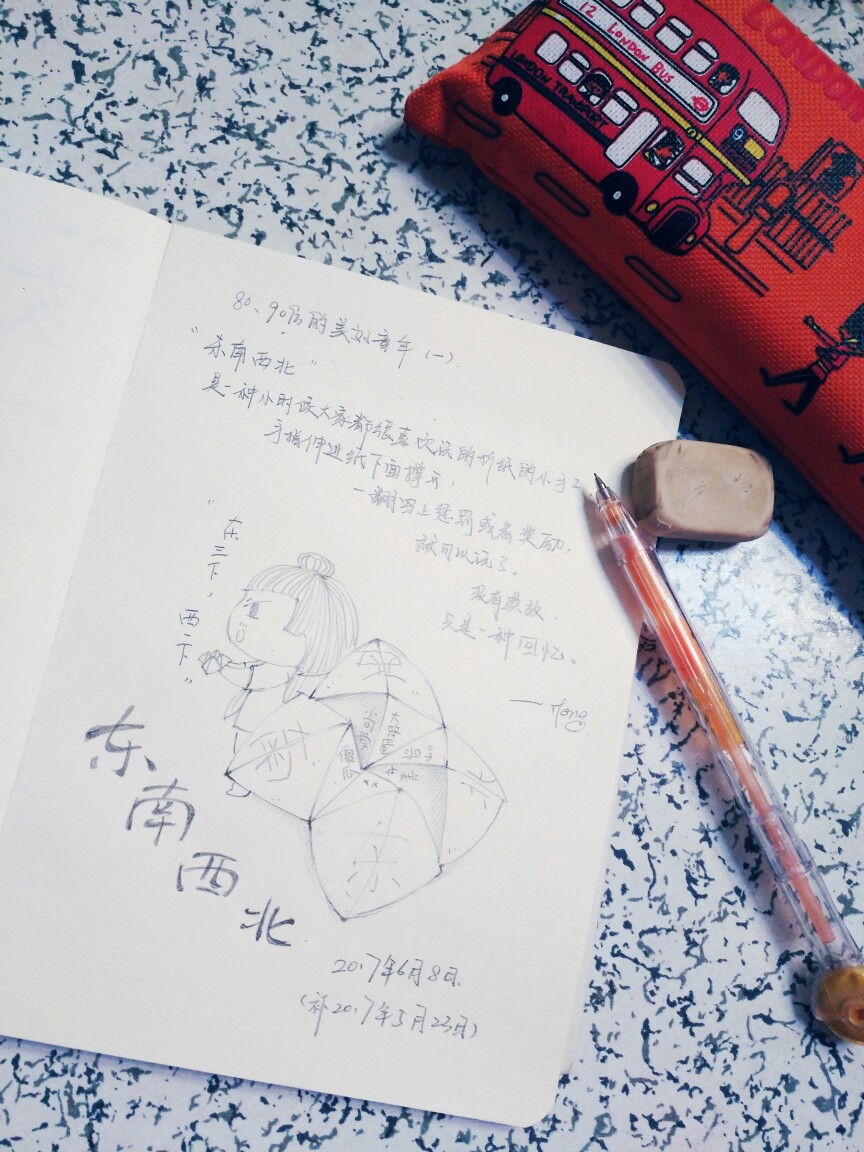 12 LONDON BUS
LONDON TRANSPORT
9
LONDON
80、90后的美好童年(一).
"东南西北"
是一种小时候大家都很喜欢玩的折纸的小手工
手指伸进纸下面撑开,
一翻写上惩罚或者奖励,
就可以玩了。
没有赘叙,
只是一种回忆。
"东三下,
西二下"
东
南
西
北
2017年6月8日.
(补2017年5月23日)